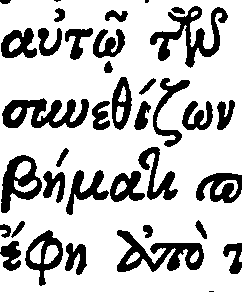 αὐτῷ
συνεθίζων
βήματι
ἔφη ἀπὸ